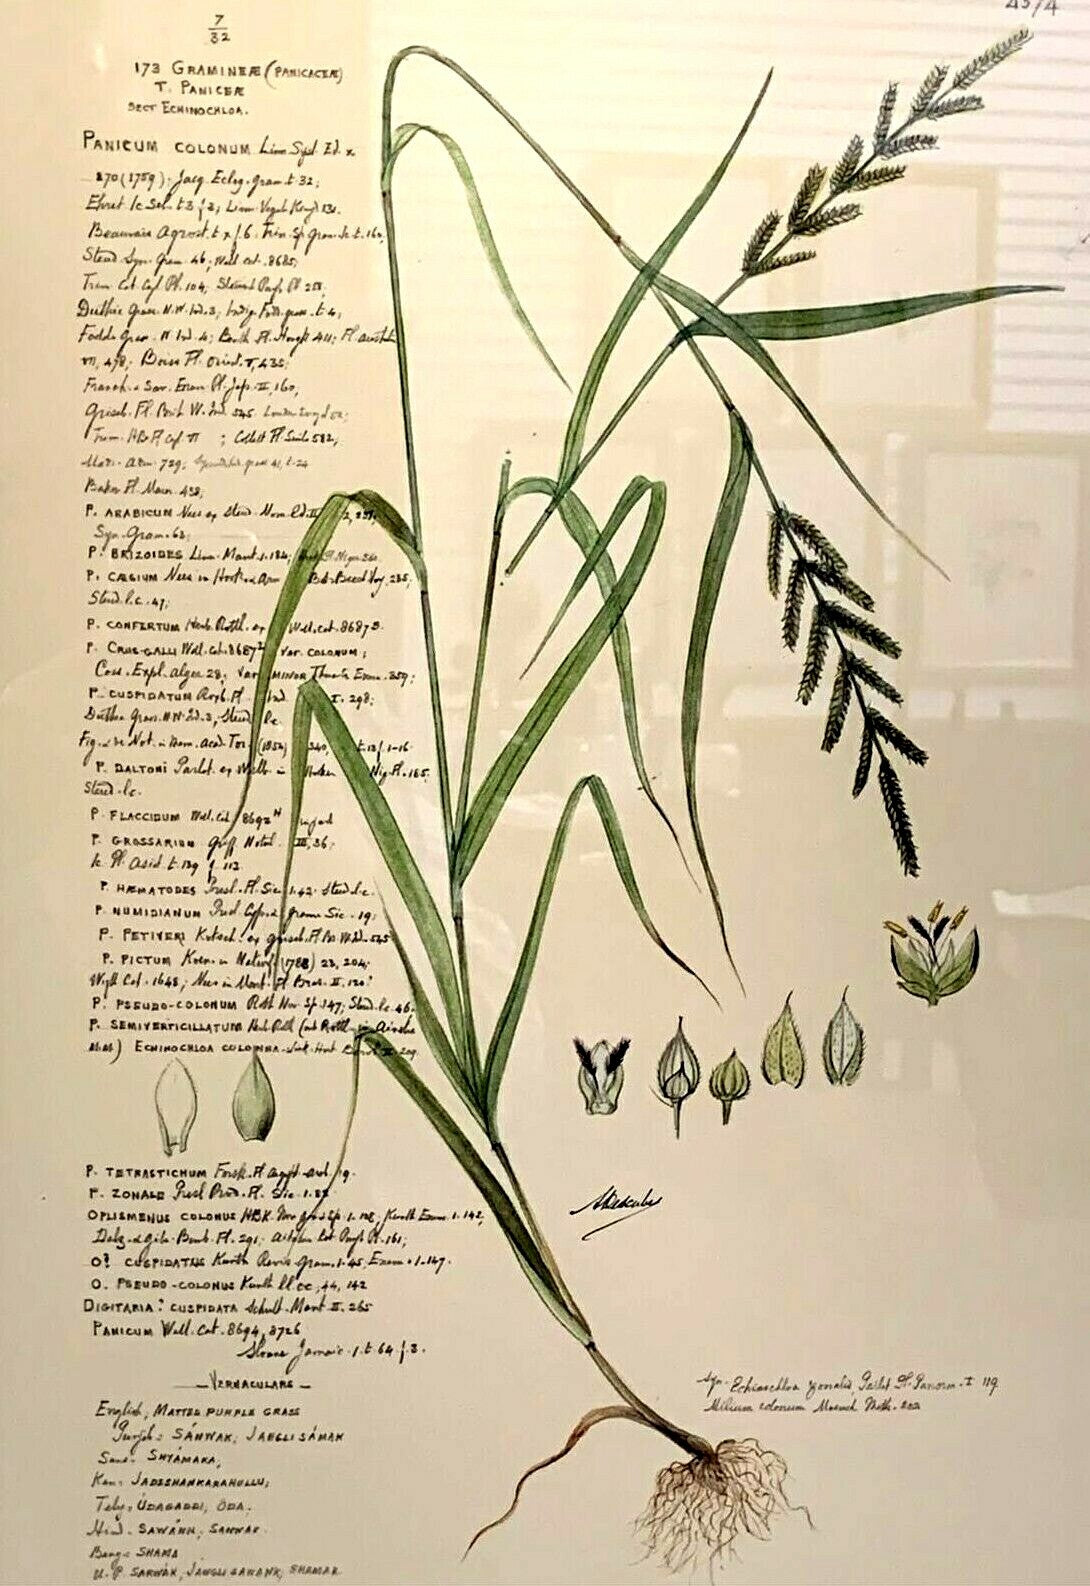 7/32
43/4
173 GRAMINEÆ (PANICACEÆ)
T. PANICEÆ
SECT ECHINOCHLOA.
PANICUM COLONUM Linn Syst. Ed. x
870 (1759); Jacq. Eclog. gram. t. 32;
Ehret Ic Sel. t 3 f 3;
Beauvois Agrost. t x f. 6. Trin. Sp. Gram. Ic t. 160,
Steud. Syn. Gram. 46; Wall cat. 8685;
Trim. Cat. Ceyl Pl. 104;
Duthie Grass. N.W. Ind. 3; Indig. Fodd. grass. t. 4;
Fodder Grass. N Ind. 4; Benth Fl. Hongk 411; Fl. austral
VII, 478; Boiss Fl. Orient. V, 435;
Franch. & Sav. Enum. Pl. Jap. II, 160,
Griseb. Fl. Brit W. Ind. 545
Trim. HB. Fl. Ceyl VI ; Collett Fl. Simla 582;
729; t. 24
Baker Fl. Maur. 438;
P. ARABICUM Nees ex Steud.
Syn. Gram. 63;
P. BRIZOIDES Linn. Mant. 1. 184;
P. CÆSIUM Nees in Hook & Arn 235;
Steud. l.c. 47;
P. CONFERTUM Herb. Rottl. ex Wall. cat. 8687
P. CRUS-GALLI Wall. Cat. 8687 Var. COLONUM;
Coss. Expl. Alger. 28; Var MINOR Thwaites Enum. 359;
P. CUSPIDATUM Roxb. Fl. Ind. I. 298;
Duthie Grass. N.W. Ind. 3, Steud. l.c.
Fig. & De Not. in Mem. Acad. Tor. (1854) 340, t. 13 f. 1-16
P. DALTONI Parlat. ex Webb. in Hooker Nig. Fl. 185,
Steud. l.c.
P. FLACCIDUM Wall. Cat. 8692
P. GROSSARIUM Griff Notul. III, 36;
Ic Pl. Asiat. t. 139 f. 113.
P. HÆMATODES Presl. Fl. Sic. 1. 42. Steud. l.c.
P. NUMIDIANUM Presl Cyp. & gram. Sic. 19;
P. PETIVERI Kotsch. ex Griseb. Fl. Br. W. Ind. 545
P. PICTUM Koen. in Naturf. (1788) 23, 204;
Wight Cat. 1648; Nees in Mart. Fl Bras. II. 120?
P. PSEUDO-COLONUM Roth Nov. Sp. 47; Steud. l.c. 46.
P. SEMIVERTICILLATUM Herb. Rottl
ECHINOCHLOA COLONNA. Link. Hort Berol. II. 209.
P. TETRASTICHUM Forsk. Fl Aegypt-arab. 19.
P. ZONALE Presl Prod. Fl. Sic. 1. 55
OPLISMENUS COLONUS HBK. Nov. gen & sp. 1. 108, Kunth Enum. 1. 142,
Dalz. & Gibs. Bomb. Fl. 291; 161;
O? CUSPIDATUS Kunth Revis gram. 1. 45, Enum. 1. 147.
O. PSEUDO-COLONUS Kunth ll cc, 44, 142
DIGITARIA? CUSPIDATA Schult. Mant II. 265
PANICUM Wall. Cat. 8694, 8726
Sloane Jamaic. 1. t. 64 f. 3.
VERNACULARS
English, MATTED PURPLE GRASS
Punjab: SÁNWAK, JANGLI SÁMAK
Sans. SHYÁMAKA,
Kan. JADESHANKARAHULLU;
Telg. ÚDAGADDI, ODA.
Hind. SAWÁNK, SANWAK.
Beng. SHAMA
U. P. SARWAK, JANGLI SAWANK, SHAMAK
Syn. Echinochloa zonalis, Parlat Fl. Panorm. I 119
Milium colonum Moench Meth. 202